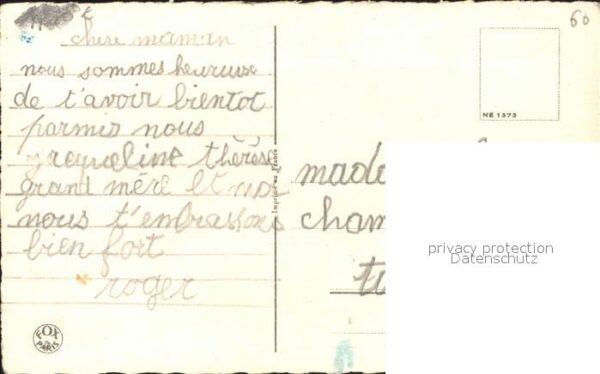 60
chere maman
nous sommes heureuse
de t'avoir bientot
parmis nous
jacqueline thérèse
grand mère et moi
nous t'embrassons
bien fort
roger
NE 1373
Imprimé en France
privacy protection
Datenschutz
FOX
PARIS